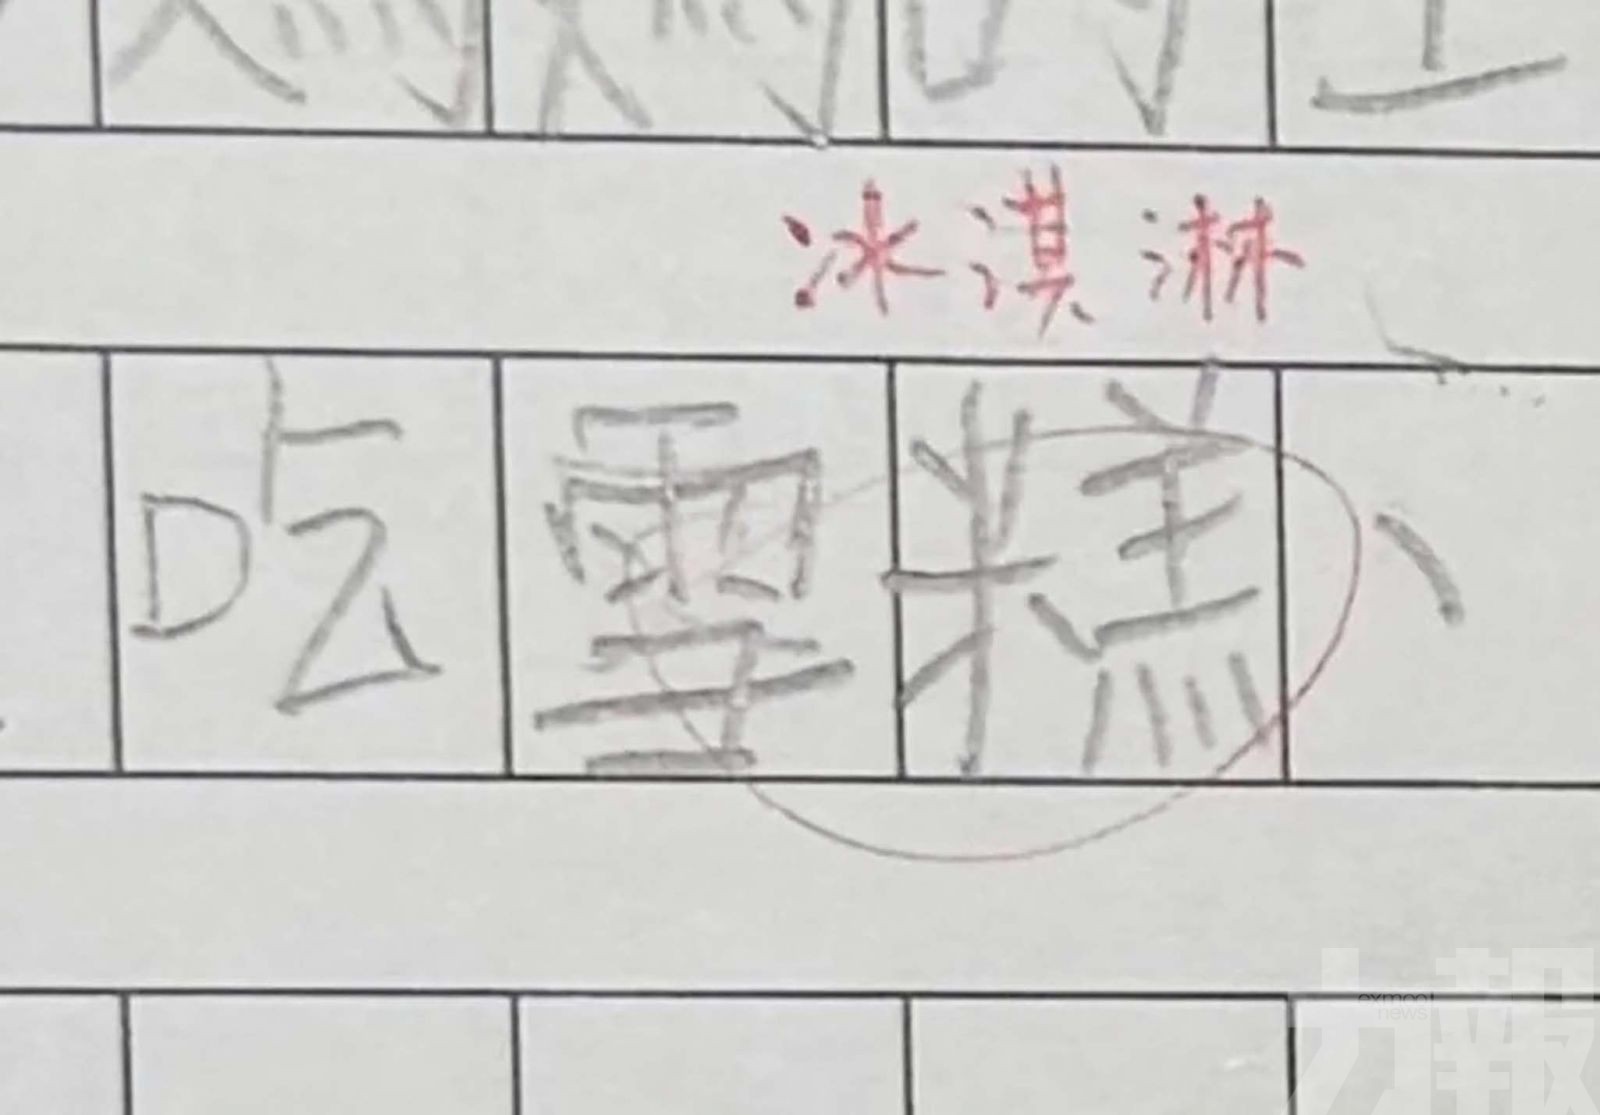 冰淇淋
吃雪糕、
力報
exmoo
news